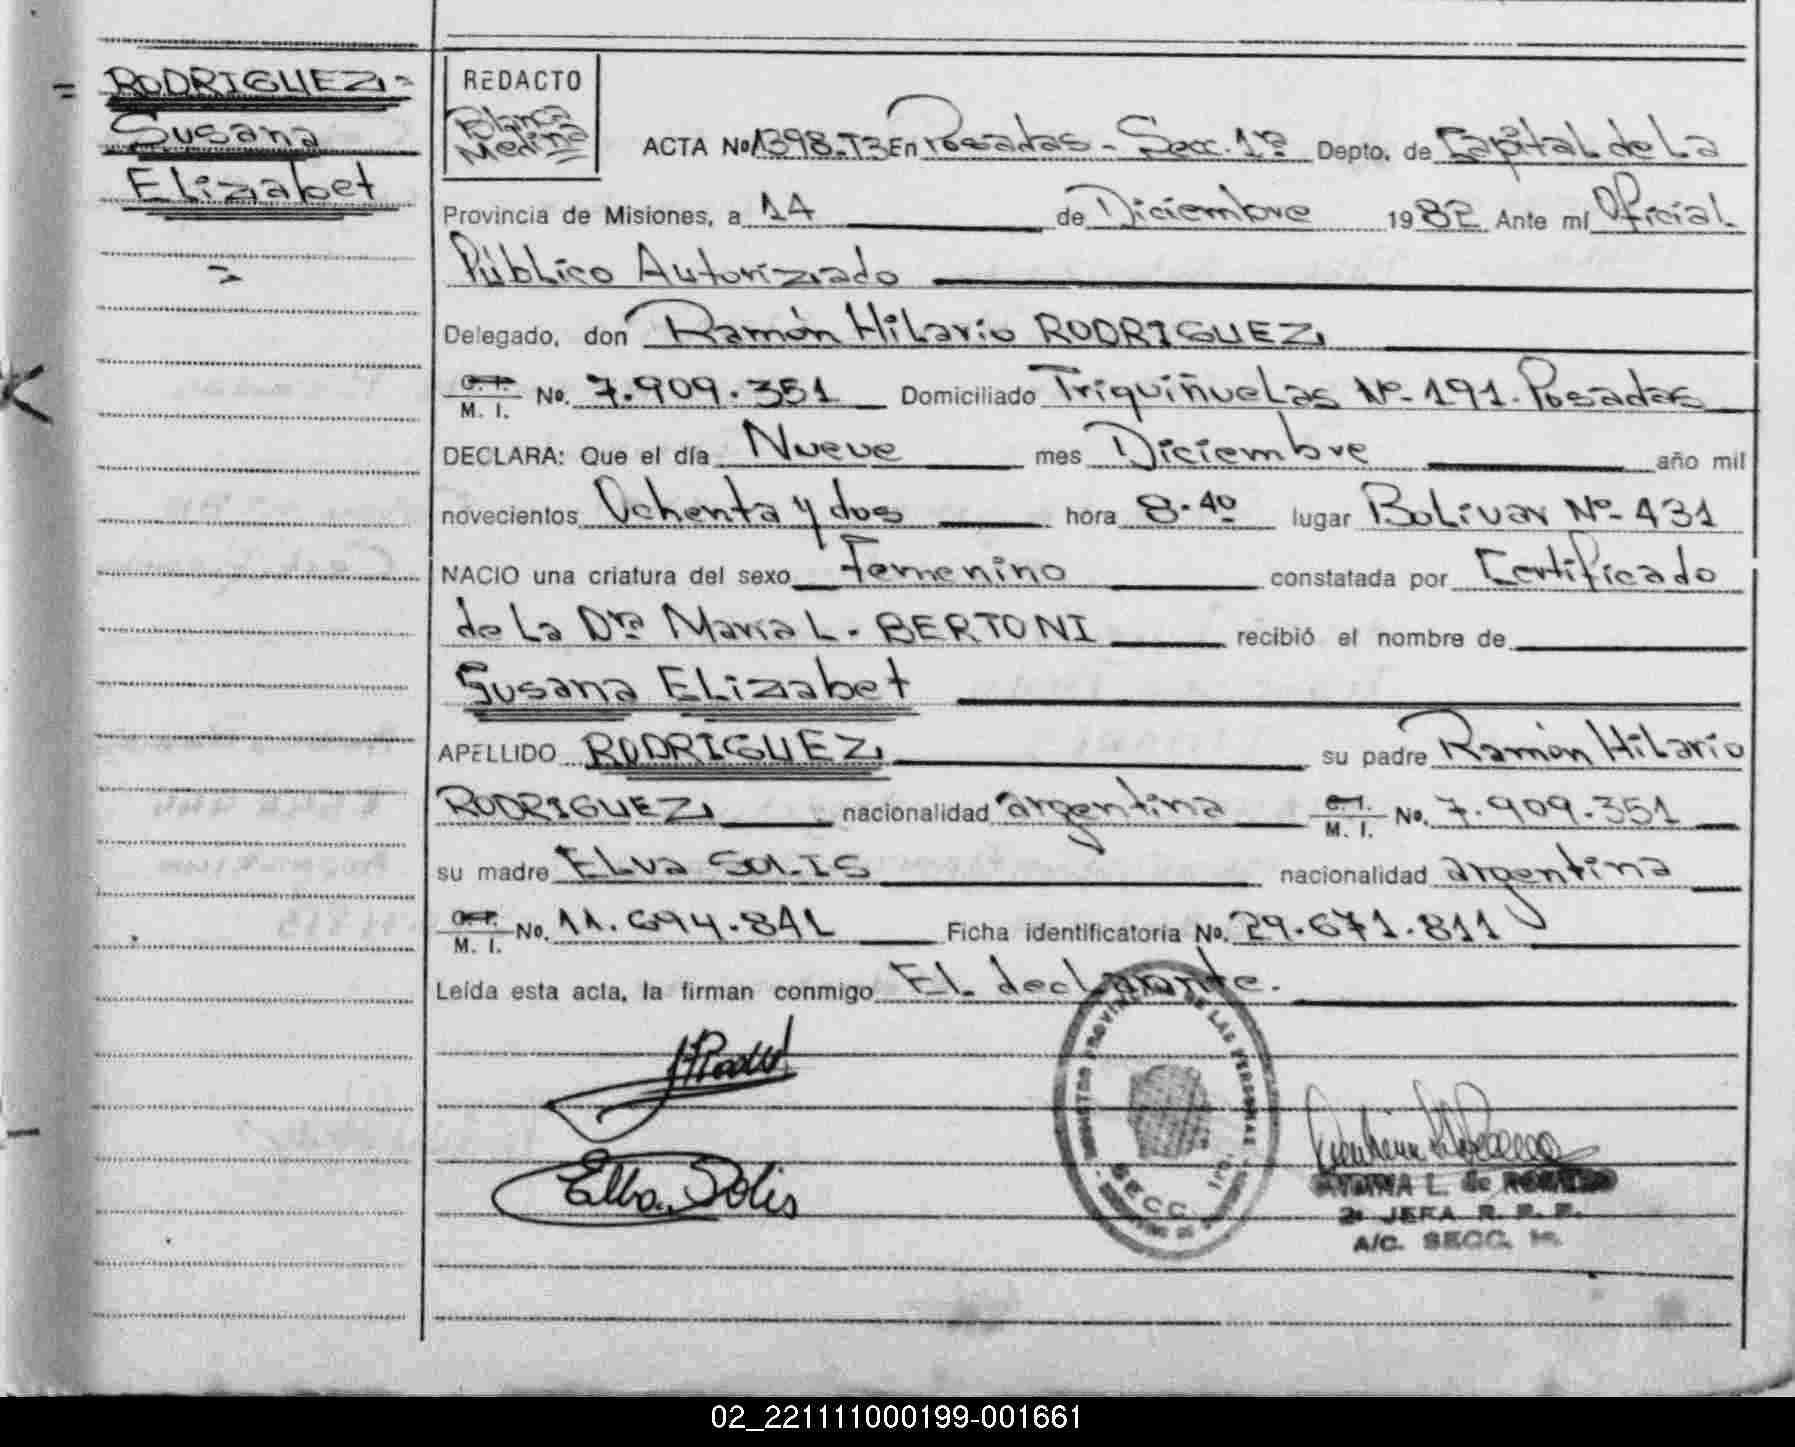 RODRIGUEZ=
Susana
Elizabet
=
REDACTO
Blanca
Medina
ACTA No 1398-T3 En Posadas - Secc. 1ª Depto. de Capital de La
Provincia de Misiones, a 14 de Diciembre 1982 Ante mí Oficial
Público Autorizado
Delegado, don Ramón Hilario RODRIGUEZ
M. I. No. 7.909.351 Domiciliado Triquiñuelas Nº- 191. Posadas
DECLARA: Que el día Nueve mes Diciembre año mil
novecientos Ochenta y dos hora 8.40 lugar Bolívar Nº- 431
NACIO una criatura del sexo femenino constatada por Certificado
de La Drª María L. BERTONI recibió el nombre de
Susana Elizabet
APELLIDO RODRIGUEZ su padre Ramón Hilario
RODRIGUEZ nacionalidad argentina M. I. No. 7.909.351
su madre Elva SOLIS nacionalidad argentina
M. I. No. 11.694.841 Ficha identificatoria No. 29.671.811
Leída esta acta, la firman conmigo El declarante.
Elba Solis
DE LAS PERSONAS
SECC. 1ra.
L. de
2ª JEFA R. P. P.
A/C. SECC. 1a.
02_221111000199-001661